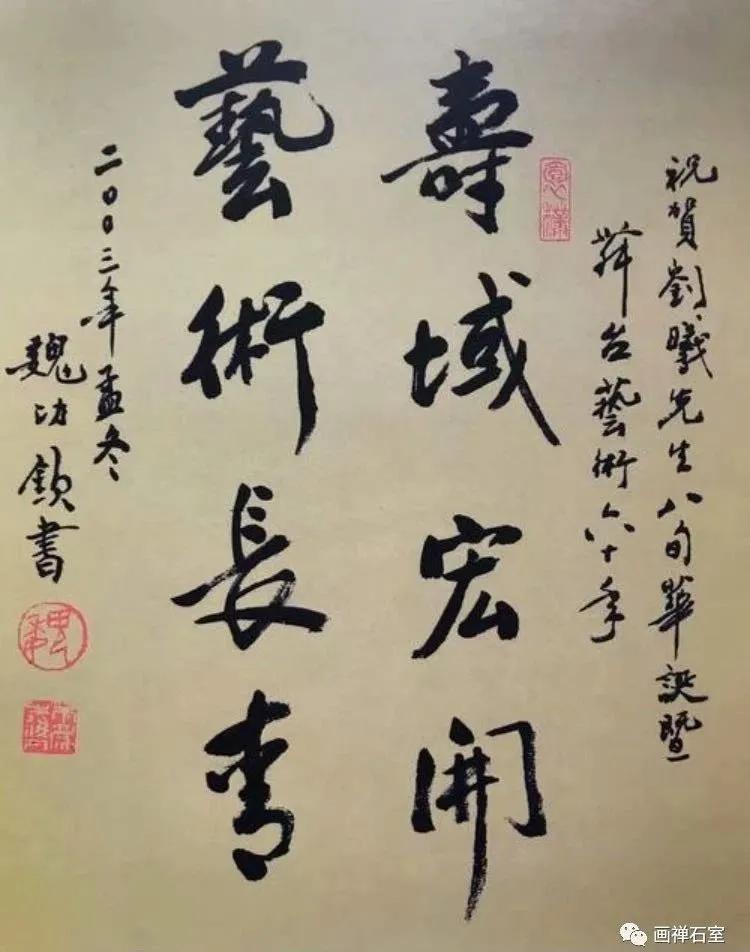 祝賀劉曦先生八旬華誕暨
舞台藝術六十年
壽域宏開
藝術長青
二００三年孟冬
魏啟欽書
画禅石室